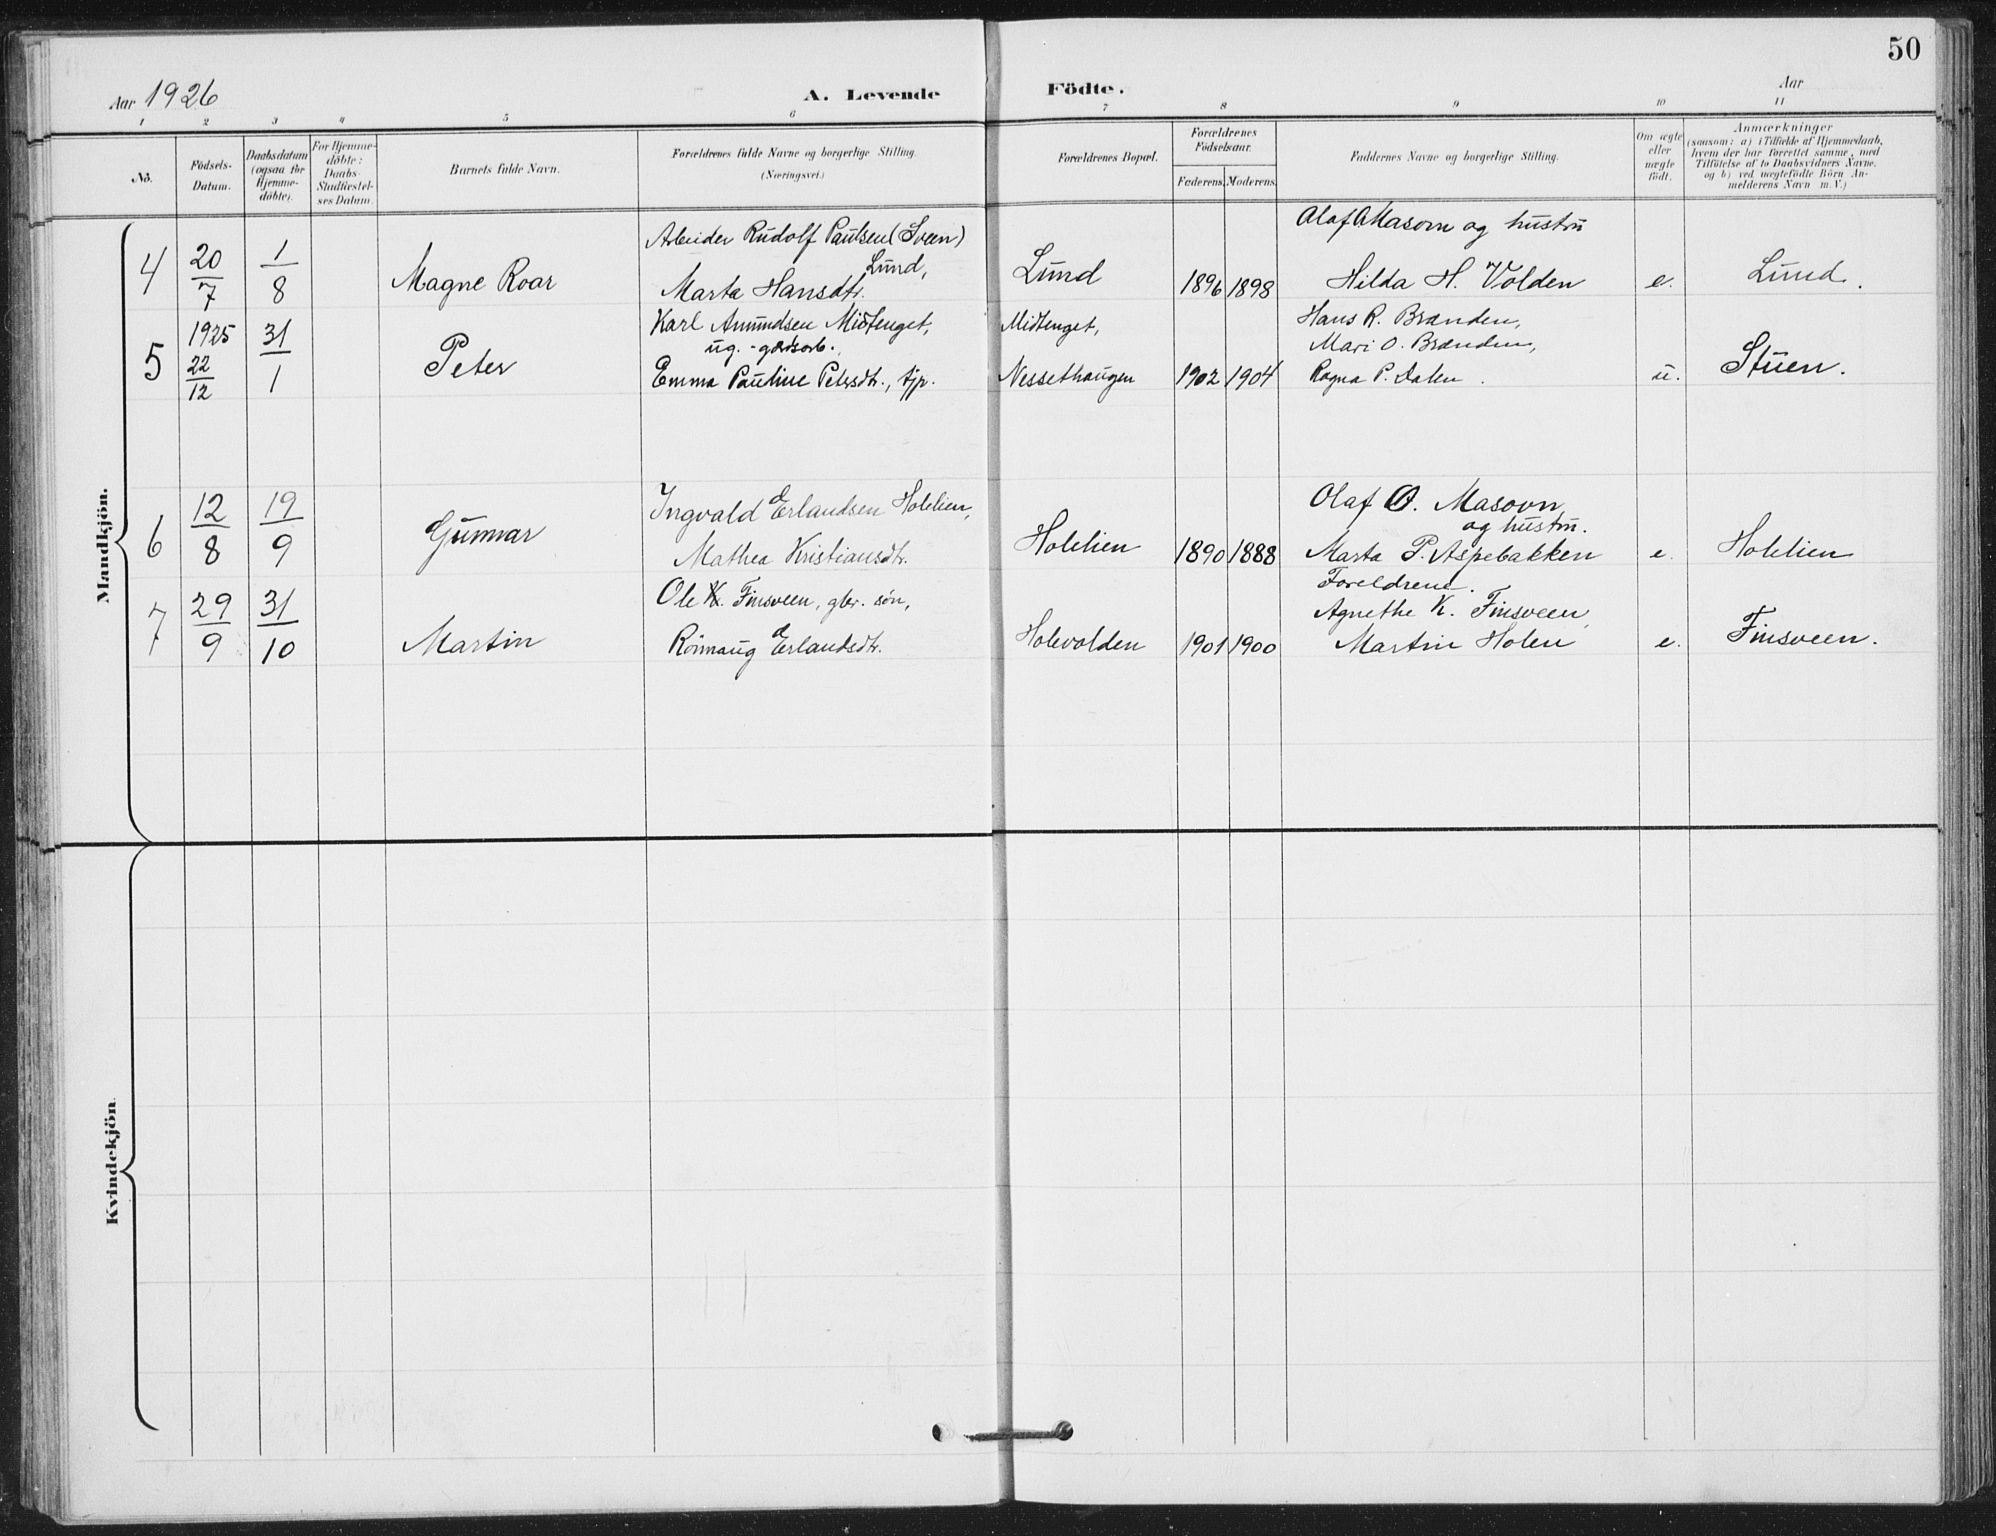 50
Aar 1926
A. Levende Födte.
Aar
1 2 3 4 5 6 7 8 9 10 11
No.
Födsels-Datum.
Daabsdatum (ogsaa for Hjemme-döbte).
For Hjemme-döbte: Daabs-Stadfæstel-ses Datum.
Barnets fulde Navn.
Forældrenes fulde Navne og borgerlige Stilling. (Næringsvei.)
Forældrenes Bopæl.
Forældrenes Födselsaar.
Faderens. Moderens.
Faddernes Navne og borgerlige Stilling.
Om ægte eller uægte födt.
Anmærkninger
(saasom: a) i Tilfælde af Hjemmedaab,
hvem der har forrettet samme, med
Tilföielse af to Daabsvidners Navne.
og b) ved uægtefödte Börn An-
melderens Navn m.V.)
Mandkjön.
Arbeider Rudolf Paulsen (Sveen) Olaf O Masovn og hustru
Lund,
4 20/7 1/8 Magne Roar Marta Hansdtr. Lund 1896 1898 Hilda H. Volden e. Lund.
1925 Karl Amundsen Midtenget, Midtenget, Hans R. Brænden,
ug. - gårdsarb. Mari O. Brænden,
5 22/12 31/1 Peter Emma Pauline Petersdtr., tjp. Nessethaugen 1902 1904 Ragna P. Dalen. u. Stuen.
Ingvald Erlandsen Holelien, Olaf O. Masovn
og hustru.
6 12/8 19/9 Gunnar Mathea Kristiansdtr. Holelien 1890 1888 Marta P. Aspebakken e. Holelien
Foreldrene.
Ole K. Finsveen, gbr. søn, Agnethe K. Finsveen,
7 29/9 31/10 Martin Rönnaug Erlandsdtr. Holevolden 1901 1900 Martin Holen e. Finsveen.
Kvindekjön.